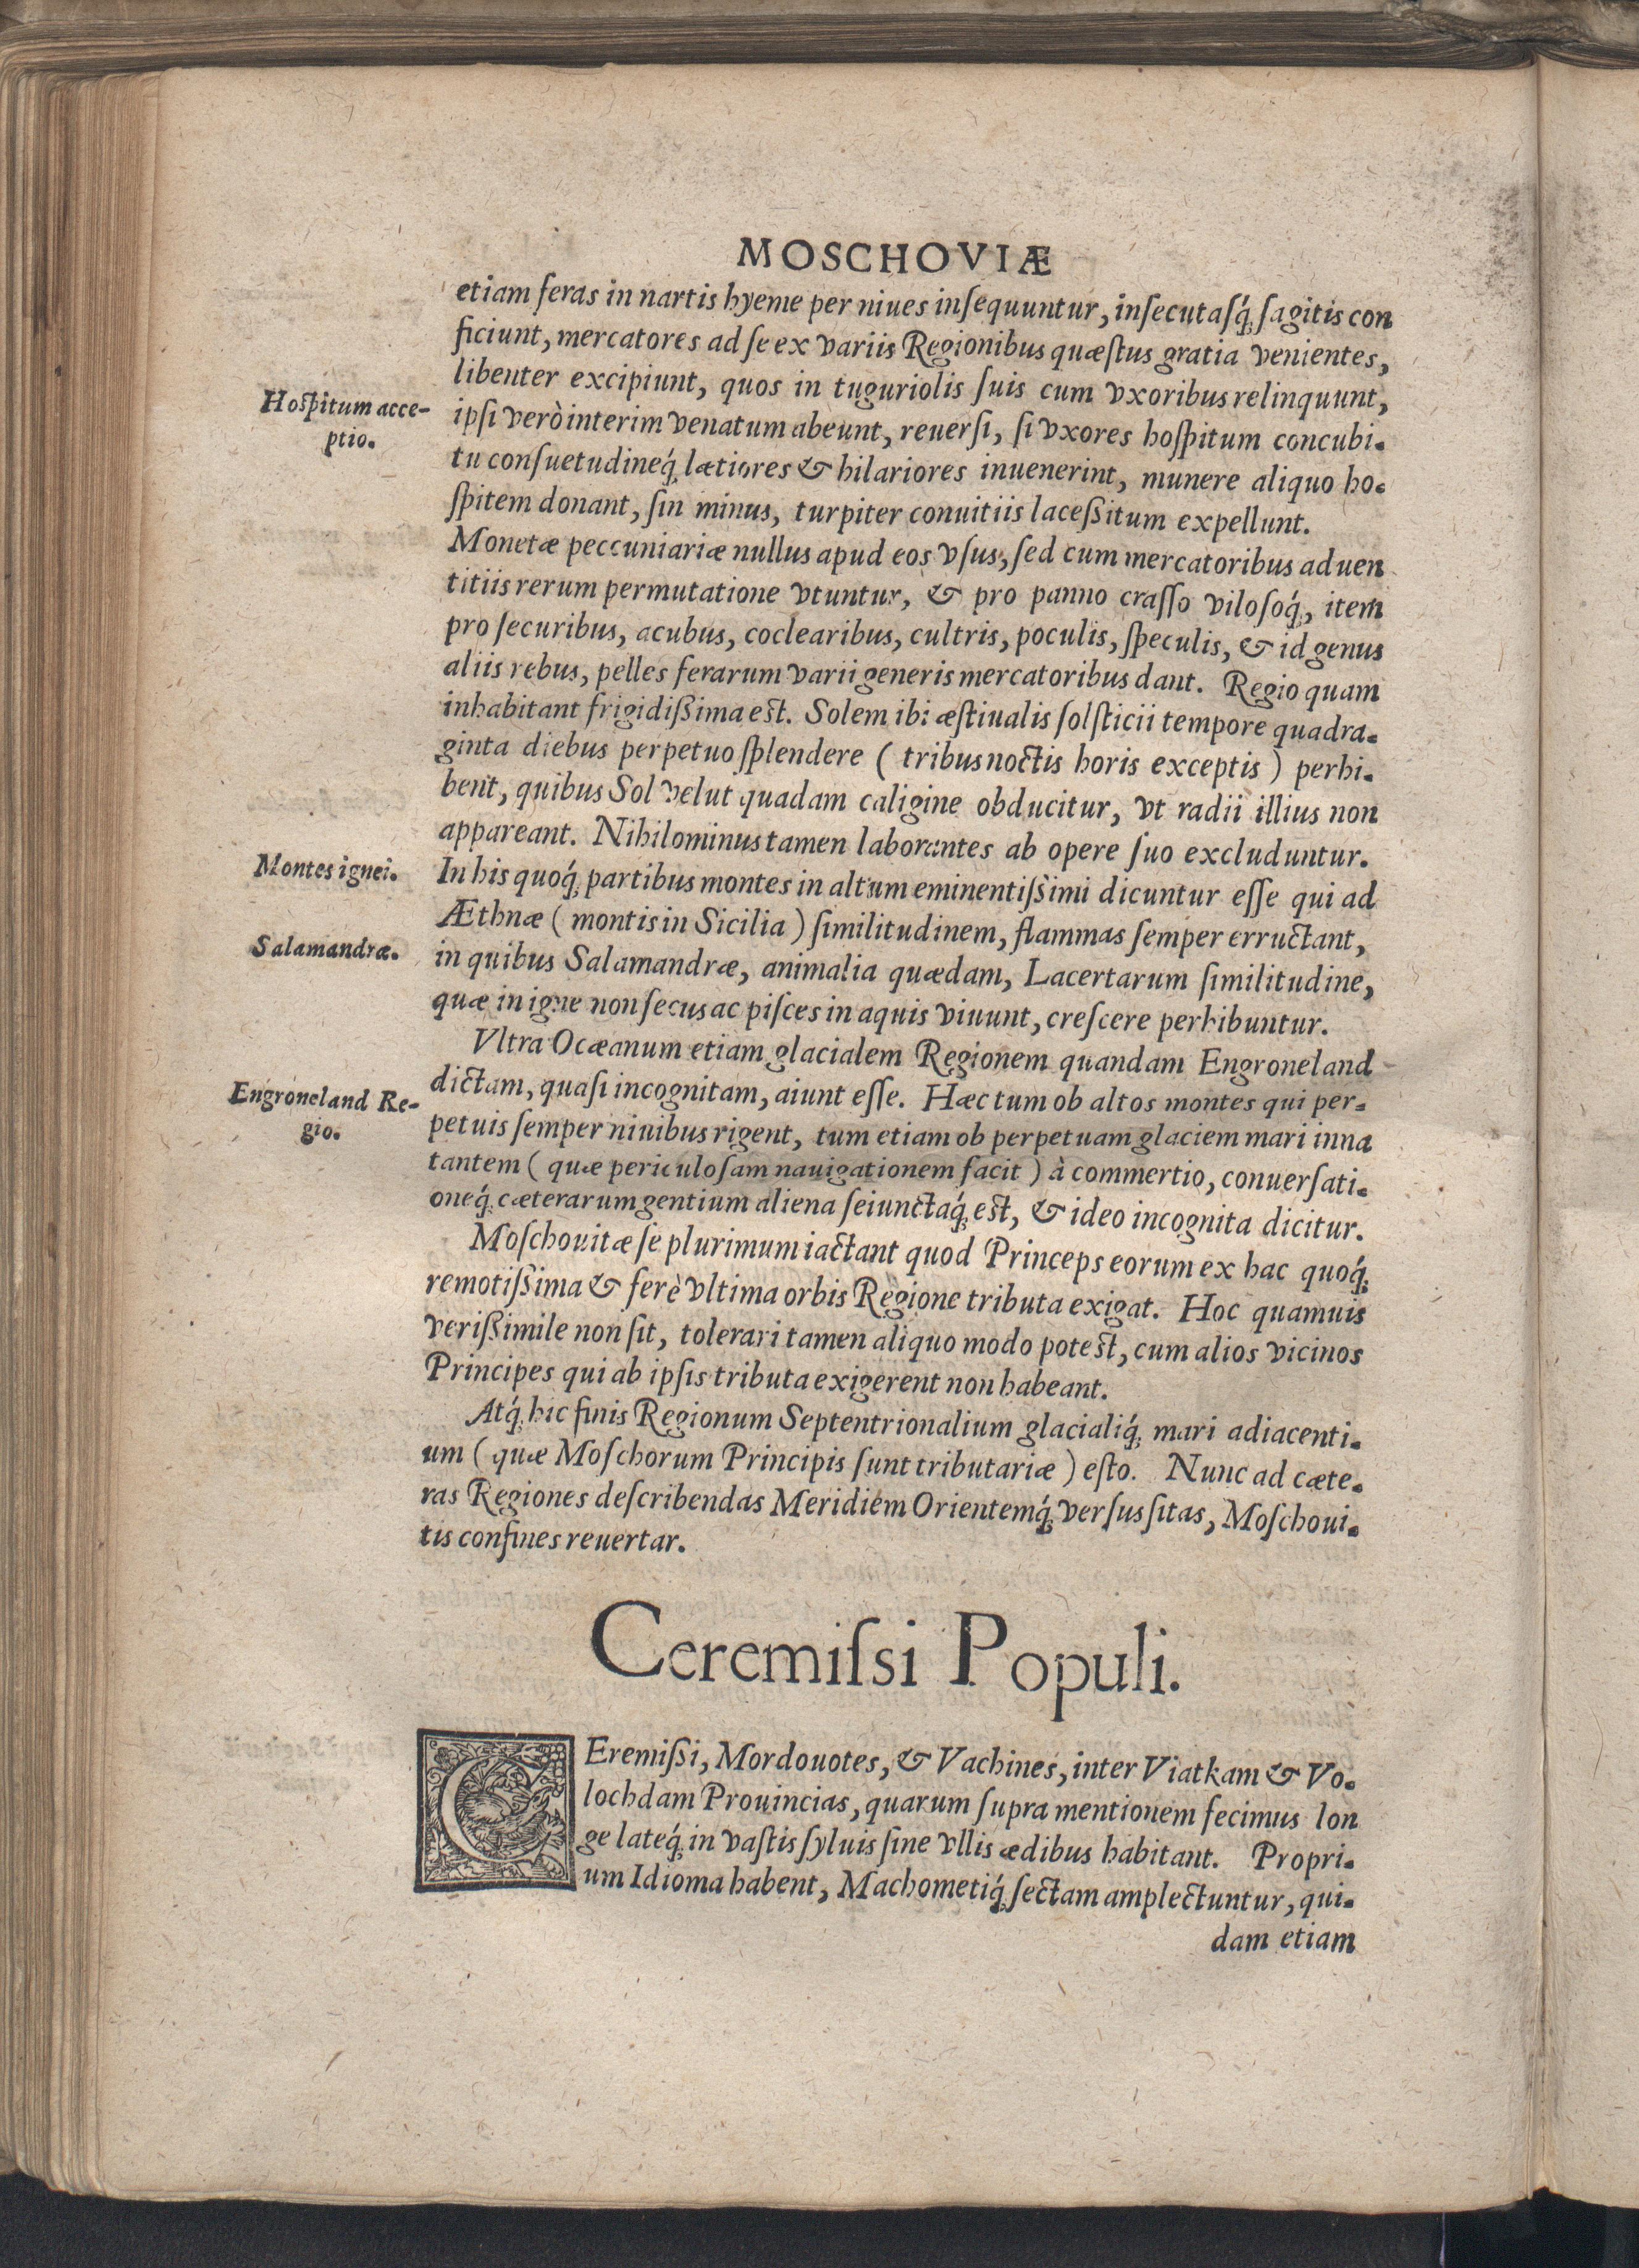 MOSCHOVIÆ
etiam feras in nartis hyeme per niues inſequuntur, inſecutaſq́; ſagitis con
ficiunt, mercatores ad ſe ex variis Regionibus quæſtus gratia venientes,
libenter excipiunt, quos in tuguriolis ſuis cum vxoribus relinquunt,
Hoſpitum acce-
ptio.
ipſi verò interim venatum abeunt, reuerſi, ſi vxores hoſpitum concubi-
tu conſuetudineq́; lætiores & hilariores inuenerint, munere aliquo ho-
ſpitem donant, ſin minus, turpiter conuitiis laceßitum expellunt.
Monetæ peccuniariæ nullus apud eos vſus, ſed cum mercatoribus aduen
titiis rerum permutatione vtuntur, & pro panno craſſo viloſoq́;, item
pro ſecuribus, acubus, coclearibus, cultris, poculis, ſpeculis, & id genus
aliis rebus, pelles ferarum varii generis mercatoribus dant. Regio quam
inhabitant frigidißima est. Solem ibi æſtiualis ſolſticii tempore quadra-
ginta diebus perpetuo ſplendere ( tribus noctis horis exceptis ) perhi-
bent, quibus Sol velut quadam caligine obducitur, vt radii illius non
appareant. Nihilominus tamen laborantes ab opere ſuo excluduntur.
Montes ignei.
In his quoq́; partibus montes in altum eminentißimi dicuntur eſſe qui ad
Æthnæ ( montis in Sicilia ) ſimilitudinem, flammas ſemper erructant,
Salamandræ.
in quibus Salamandræ, animalia quædam, Lacertarum ſimilitudine,
quæ in igne non ſecus ac piſces in aquis viuunt, creſcere perhibuntur.
Vltra Ocæanum etiam glacialem Regionem quandam Engroneland
Engroneland Re-
gio.
dictam, quaſi incognitam, aiunt eſſe. Hæc tum ob altos montes qui per-
petuis ſemper niuibus rigent, tum etiam ob perpetuam glaciem mari inna
tantem ( quæ periculoſam nauigationem facit ) à commertio, conuerſati-
oneq́; cæterarum gentium aliena ſeiunctaq́; est, & ideo incognita dicitur.
Moſchouitæ ſe plurimum iactant quod Princeps eorum ex hac quoq́;
remotißima & ferè vltima orbis Regione tributa exigat. Hoc quamuis
verißimile non ſit, tolerari tamen aliquo modo potest, cum alios vicinos
Principes qui ab ipſis tributa exigerent non habeant.
Atq́; hic finis Regionum Septentrionalium glacialiq́; mari adiacenti-
um ( quæ Moſchorum Principis ſunt tributariæ ) eſto. Nunc ad cæte-
ras Regiones deſcribendas Meridiem Orientemq́; verſus ſitas, Moſchoui-
tis confines reuertar.
Ceremiſsi Populi.
CEremißi, Mordouotes, & Vachines, inter Viatkam & Vo-
lochdam Prouincias, quarum ſupra mentionem fecimus lon
ge lateq́; in vaſtis ſyluis ſine vllis ædibus habitant. Propri-
um Idioma habent, Machometiq́; ſectam amplectuntur, qui-
dam etiam